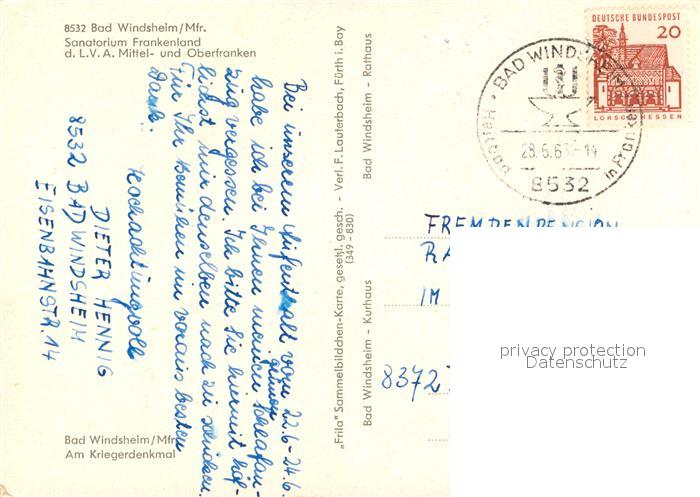 8532 Bad Windsheim/Mfr.
Sanatorium Frankenland
d. L.V.A. Mittel- und Oberfranken
Bei unserem Aufenthalt vom 22.6-24.6.
habe ich bei Ihnen meinen grünen Schlafan-
zug vergessen. Ich bitte Sie hiermit höf-
lichst mir denselben nach zu schicken.
Für Ihr Bemühen im voraus besten
Dank.
Hochachtungsvoll
DIETER HENNIG
8532 BAD WINDSHEIM
EISENBAHNSTR. 14
Bad Windsheim/Mfr.
Am Kriegerdenkmal
„Frila" Sammelbildchen-Karte, gesetzl. gesch. - Verl. F. Lauterbach, Fürth i. Bay
(349 - 830)
Bad Windsheim - Kurhaus
Bad Windsheim - Rathaus
DEUTSCHE BUNDESPOST
20
LORSCH/HESSEN
BAD WINDSHEIM
Heilbad
in Franken
28.6.6 -14
8532
FREMDENPENSION
RA
IM
8372
privacy protection
Datenschutz